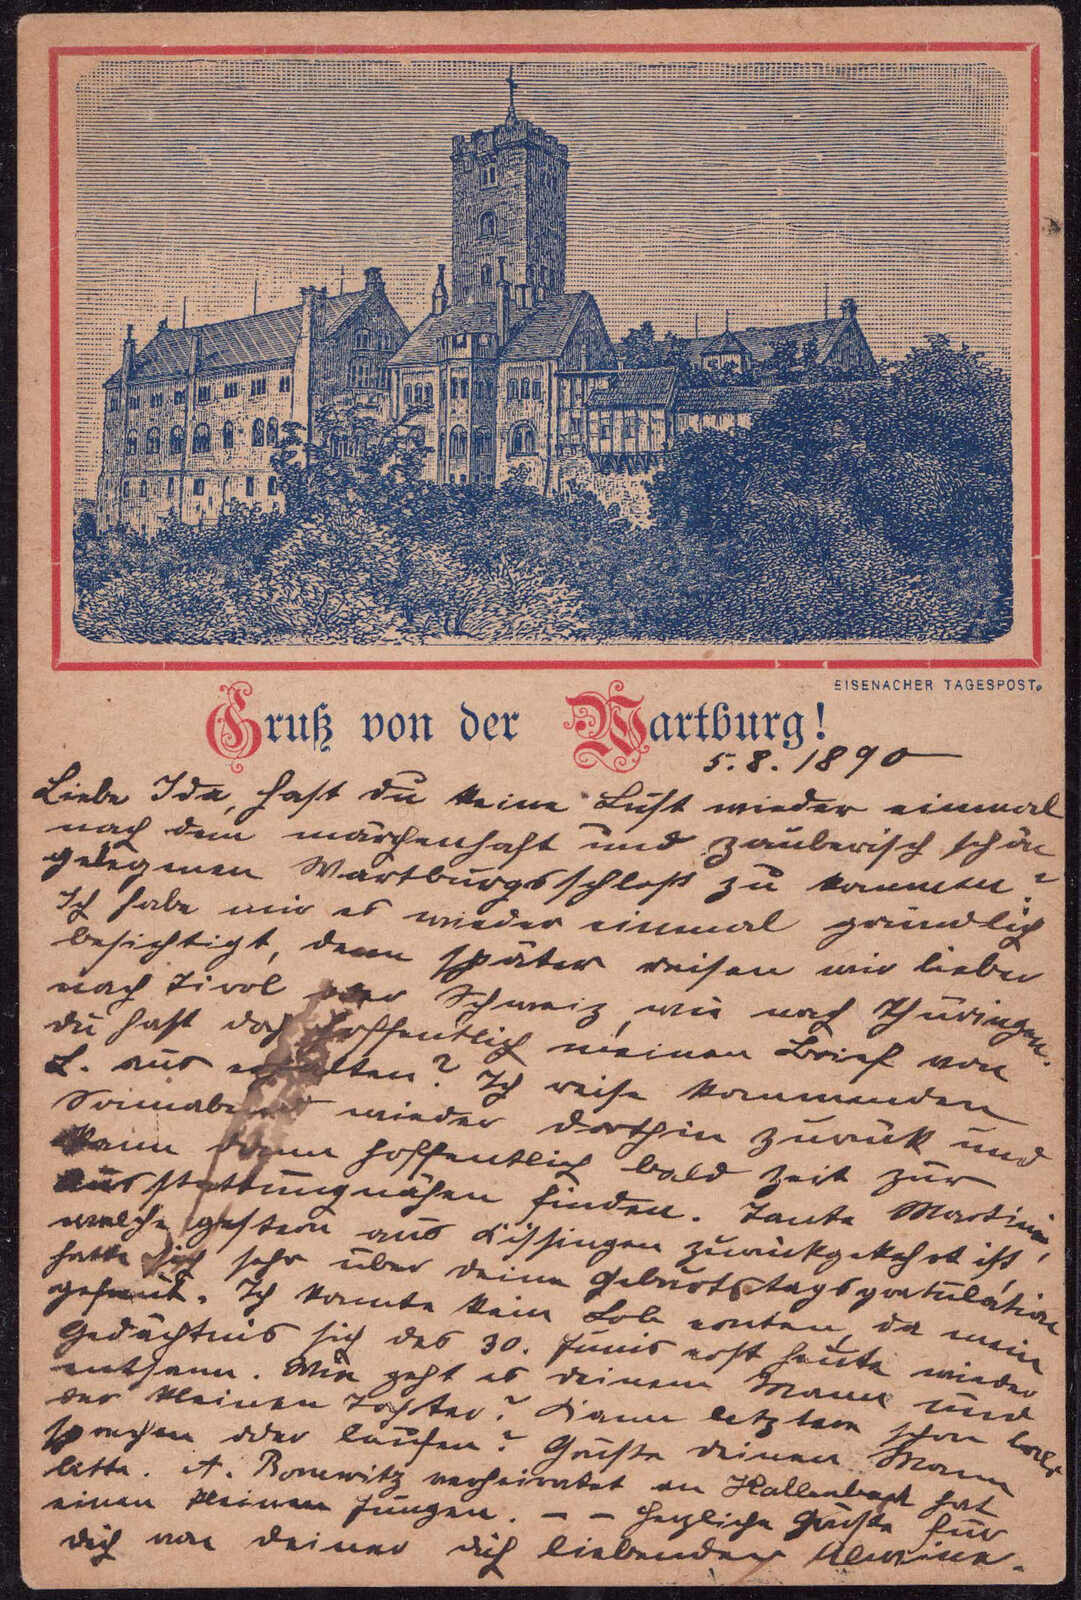 EISENACHER TAGESPOST.
Gruß von der Wartburg!
5. 8. 1890
Liebe Ida, hast du keine Lust wieder einmal
nach dem märchenhaft und zauberisch schön
gelegenen Wartburgsschloß zu kommen?
Ich habe mir es wieder einmal gründlich
besichtigt, denn später reisen wir lieber
nach Tirol oder Schweiz, wie nach Thüringen.
Du hast doch hoffentlich meinen Brief von
L. aus erhalten? Ich reise kommenden
Sonnabend wieder dorthin zurück und
kann dann hoffentlich bald Zeit zur
Ausstattungnähen finden. Tante Martini,
welche gestern aus Kissingen zurückgekehrt ist,
hatte sich sehr über deine Geburtstagsgratulation
gefreut. Ich konnte kein Lob ernten, da mein
Gedächtnis sich des 30. Junis erst heute wieder
entsann. Wie geht es deinem Mann und
der kleinen Tochter? Kann letztere schon bald
sprechen oder laufen? Grüße deinen Mann
bitte. A. Bonewitz verheiratet in Kaltenbach hat
einen kleinen Jungen. – – Herzliche Grüße für
dich von deiner dich liebenden Alwine.